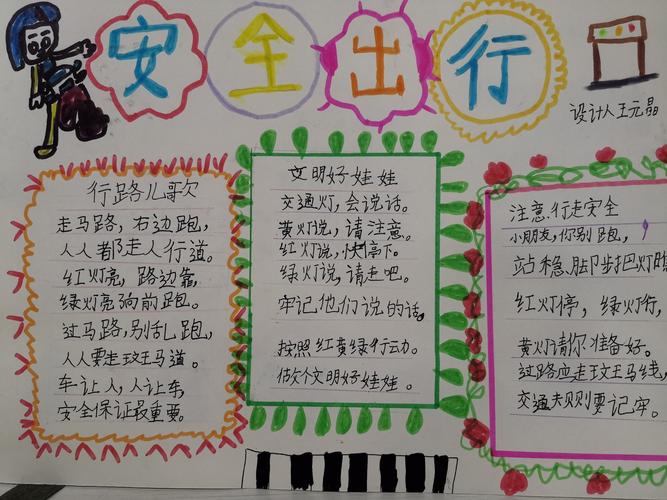 安全出行
设计人王元晶
行路儿歌
走马路，右边跑，
人人都走人行道。
红灯亮，路边靠，
绿灯亮向前跑。
过马路，别乱跑，
人人要走玟王马道。
车让人，人让车，
安全保证最重要。
文明好娃娃
交通灯，会说话。
黄灯说，请注意。
红灯说，快停下。
绿灯说，请走吧。
牢记他们说的话。
按照红黄绿行动。
做个文明好娃娃。
注意行走安全
小朋友，你别跑，
站稳脚步把灯
红灯停，绿灯行，
黄灯请你准备好。
过路应走玟王马线，
交通夫则则要记牢。